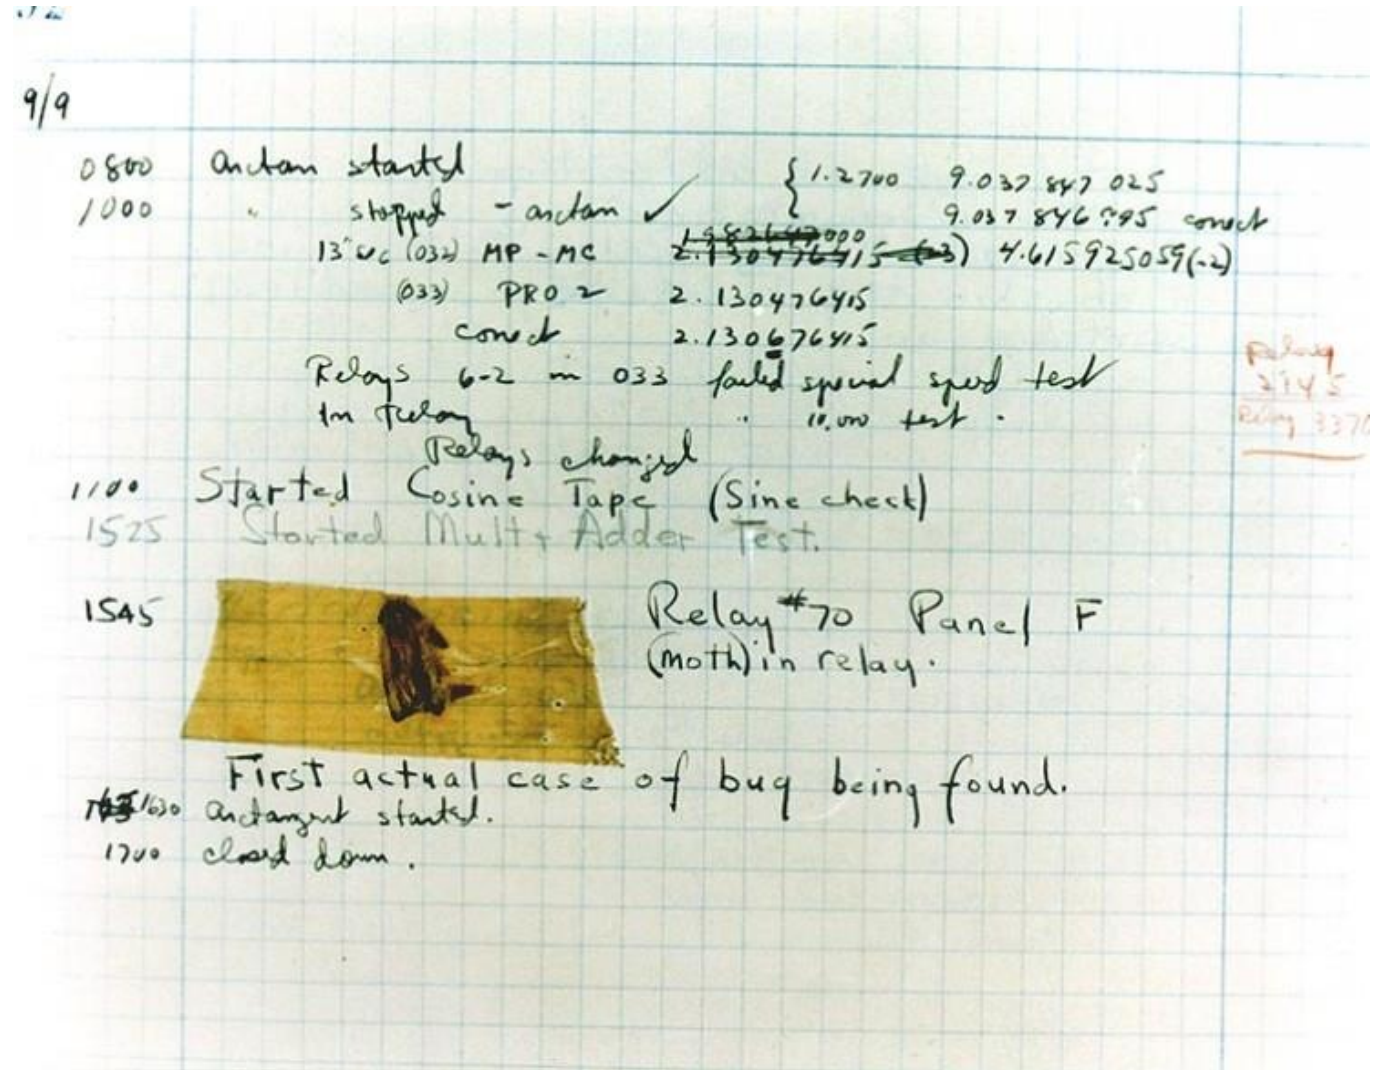 9/9
0800 Antan started { 1.2700 9.037 847 025
1000 " stopped - antan ✓ 9.037 846 995 conect
13"uc (032) MP - MC 4.615925059(-2)
(033) PRO 2 2.130476415
conect 2.130676415
Relays 6-2 in 033 failed special speed test
In Relay " 10,000 test .
Relays changed
Relay
2145
Relay 3370
1100 Started Cosine Tape (Sine check)
1525 Started Mult + Adder Test.
1545 Relay #70 Panel F
(moth) in relay.
First actual case of bug being found.
1630 Antangent started.
1700 closed down.